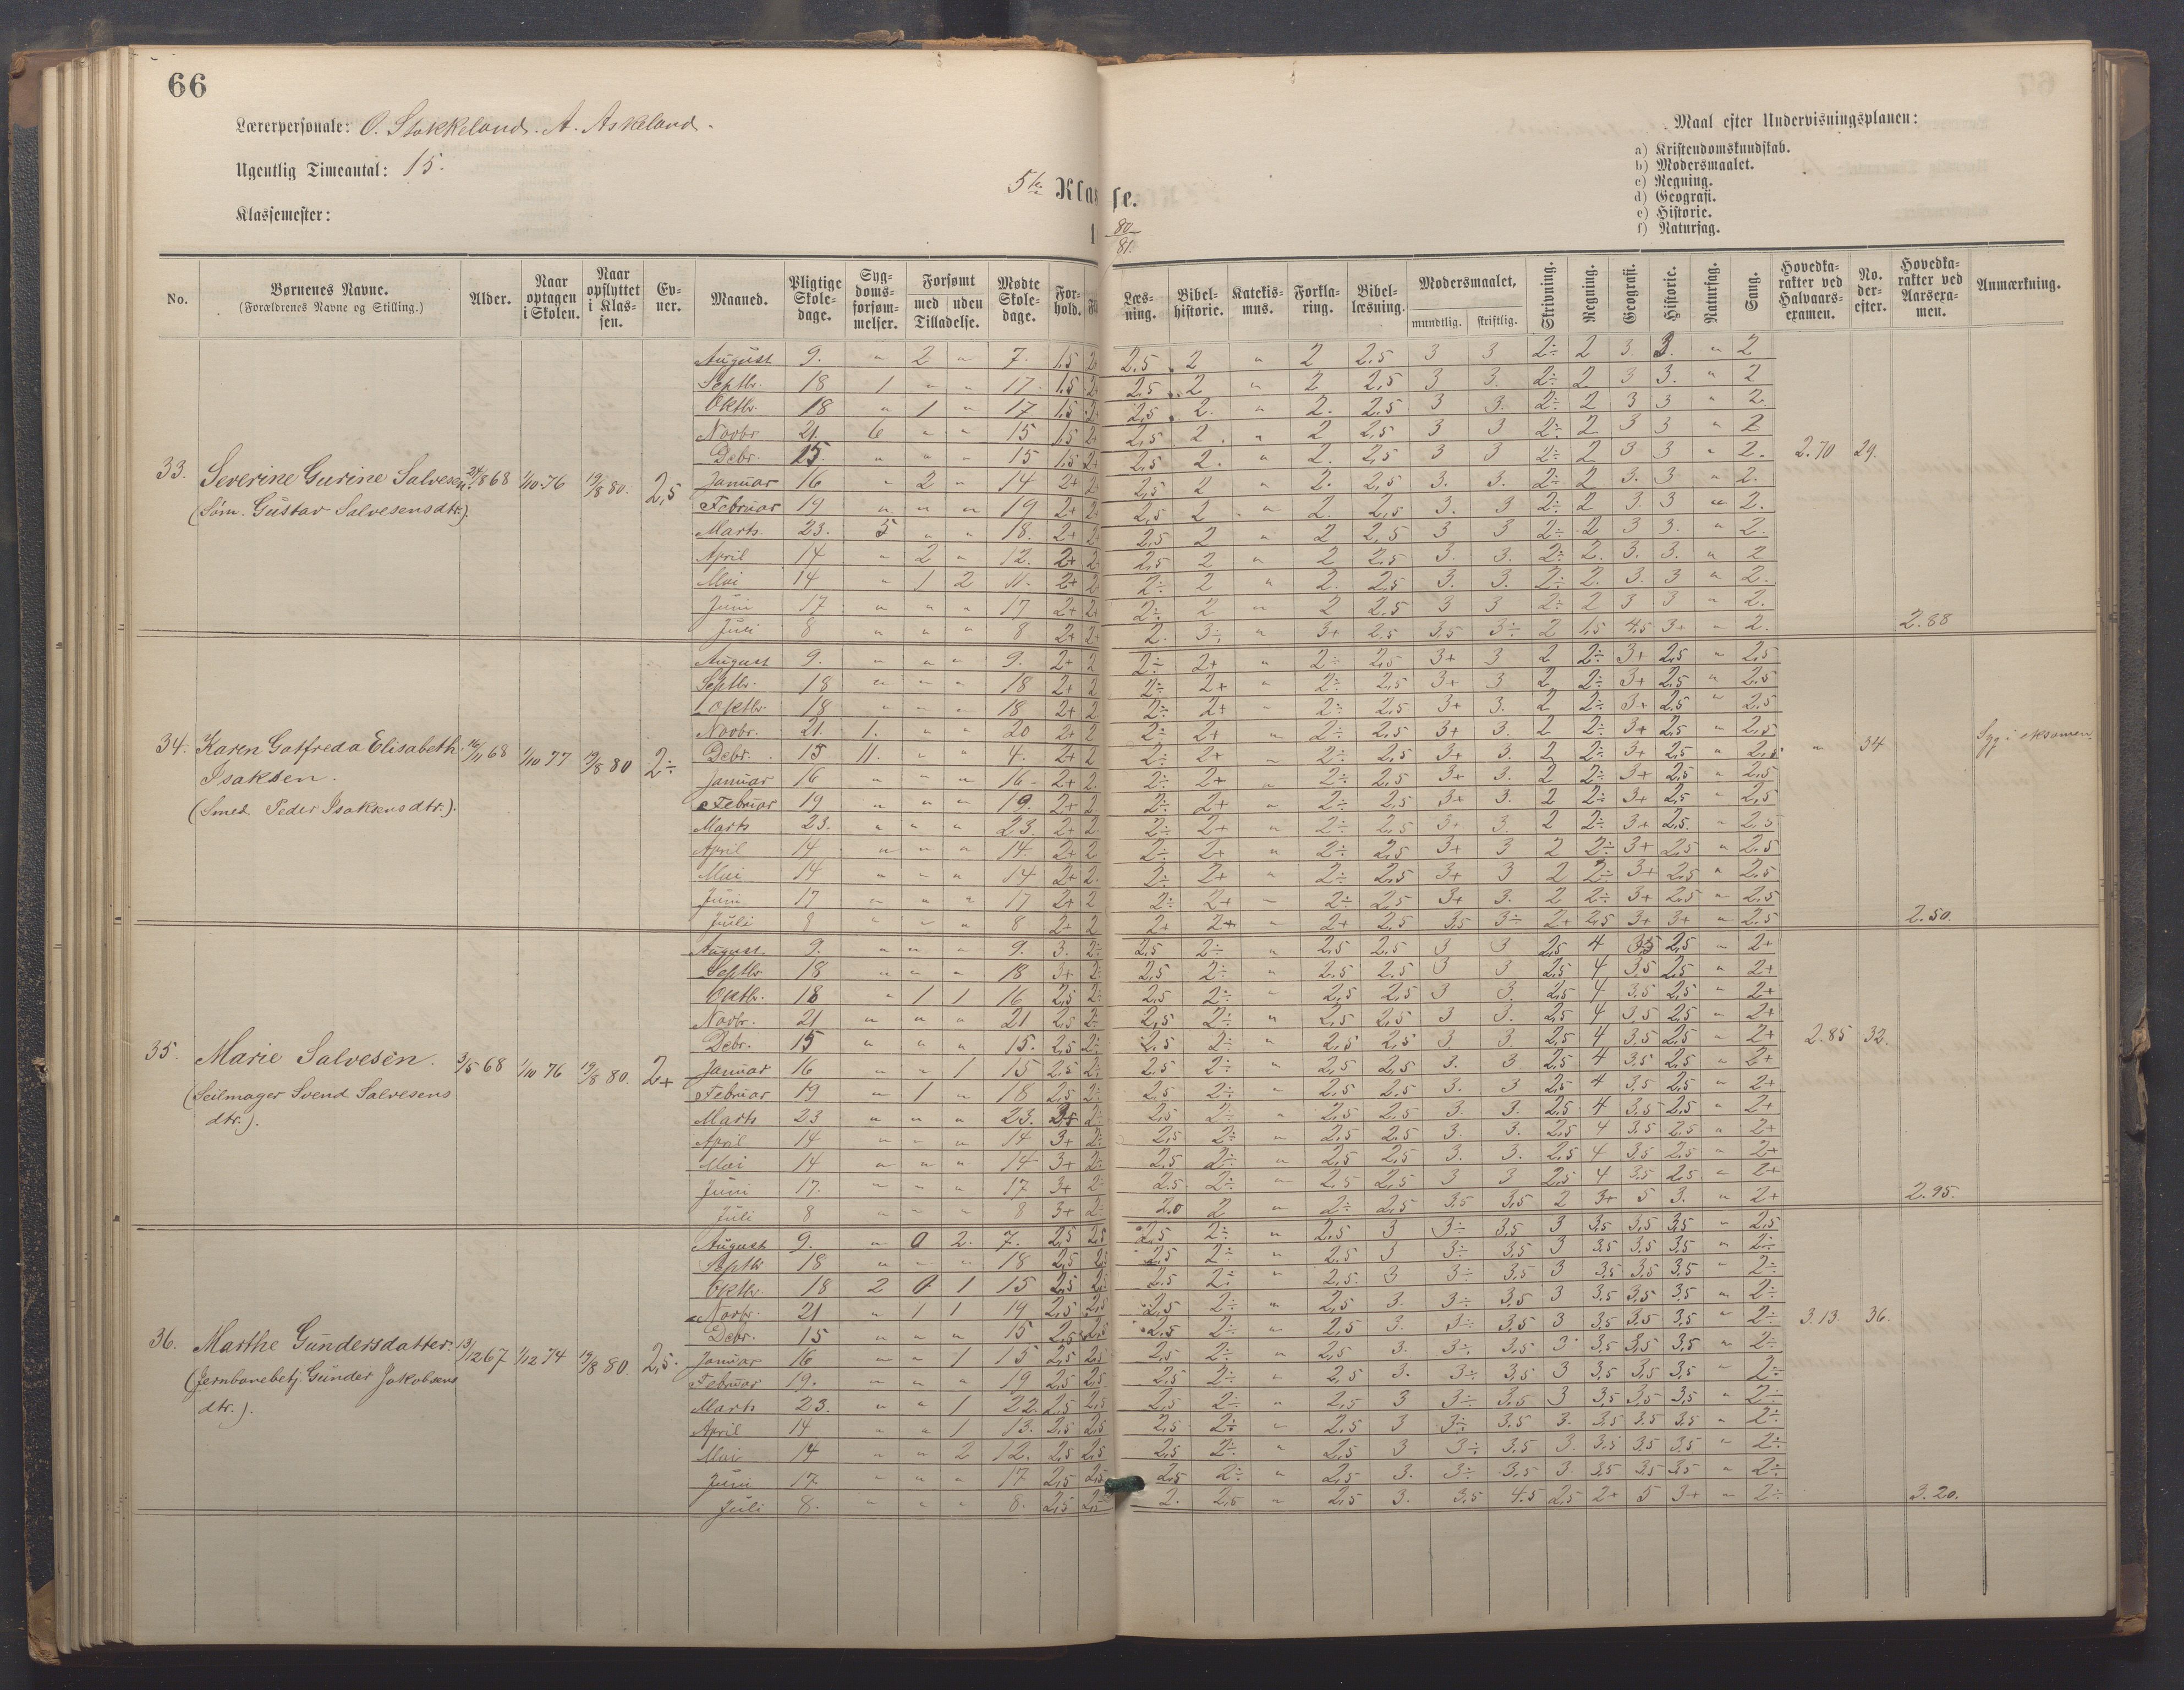 66
Lærerpersonale: O. Stokkeland. A. Askeland.
Ugentlig Timeantal: 15.
Klassemester:
5te Klasse.
80/81.
Maal efter Undervisningsplanen:
a) Kristendomskundskab.
b) Modersmaalet.
c) Regning.
d) Geografi.
e) Historie.
f) Naturfag.
No. Børnenes Navne. (Forældrenes Navne og Stilling.) Alder. Naar optagen i Skolen. Naar opflyttet i Klassen. Evner. Maaned. Pligtige Skoledage. Sygdomsforsømmelser. Forsømt med uden Tilladelse. Mødte Skoledage. Forhold. Læsning. Bibelhistorie. Katekismus. Forklaring. Bibellæsning. Modersmaalet, mundtlig. skriftlig. Skrivning. Regning. Geografi. Historie. Naturfag. Sang. Hovedkarakter ved Halvaarsexamen. No. derefter. Hovedkarakter ved Aarsexamen. Anmærkning.
33. Severine Gurine Salvesen. 24/8 68 1/10 76 19/8 80. 2,5
(Søm. Gustav Salvesens dtr.)
August 9. " 2 " 7. 1,5 2,5 2 " 2 2,5 3 3 2÷ 2 3. 3. " 2
Septbr. 18 1 " " 17 1,5 2,5 2 " 2 2,5 3 3. 2÷ 2 3 3. " 2
Oktbr. 18 " 1 " 17 1,5 2,5 2. " 2. 2,5 3 3. 2÷ 2 3 3 " 2.
Novbr 21. 6 " " 15 1,5 2+ 2,5 2. " 2 2,5 3 3 2÷ 2. 3 3 " 2
Debr. 15. " " " 15 1,5 2+ 2,5 2. " 2. 2,5 3 3 2÷ 2 3 3 " 2. 2.70 29.
Januar 16 " 2 " 14 2+ 2,5 2 " 2. 2,5 3. 3. 2÷ 2 3. 3 " 2.
Februar 19 " " " 19 2+ 2,5 2 " 2. 2,5 3. 3 2÷ 2 3 3 " 2.
Marts 23. 5 " " 18. 2+ 2,5 2 " 2 2,5 3 3 2÷ 2 3 3. " 2.
April 14 " 2 " 12. 2+ 2,5 2 " 2 2,5 3. 3. 2÷ 2. 3. 3. " 2
Mai 14 " 1 2 11. 2+ 2 2÷ 2 " 2 2,5 3. 3. 2÷ 2. 3. 3 " 2.
Juni 17 " " " 17 2+ 2+ 2÷ 2 " 2 2,5 3 3 2÷ 2 3 3 " 2.
Juli 8 " " " 8 2+ 2+ 2. 3÷ " 3+ 2.5 3,5 3÷ 2 1,5 4,5 3+ " 2. 2.88
34. Karen Gotfreda Elisabeth 16/11 68 1/10 77 19/8 80 2÷
Isaksen.
(Smed Peder Isaksens dtr.).
August 9. " " " 9. 2+ 2 2÷ 2+ " 2÷ 2,5 3+ 3 2 2÷ 3+ 2,5 " 2,5
Septbr. 18 " " " 18 2+ 2 2÷ 2+ " 2÷ 2,5 3+ 3 2 2÷ 3+ 2,5 " 2.5
Oktbr. 18 " " " 18 2+ 2 2÷ 2+ " 2÷ 2,5 3+ 3. 2 2÷ 3+ 2,5 " 2,5
Novbr. 21. 1. " " 20 2+ 2 2÷ 2+ " 2÷ 2,5 3+ 3. 2 2÷ 3+ 2,5 " 2,5
Debr. 15 11. " " 4. 2+ 2 2÷ 2+ " 2÷ 2,5 3+ 3. 2 2÷ 3+ 2,5 " 2,5 " 34 Syg i eksamen.
Januar 16 " " " 16 2+ 2. 2÷ 2+ " 2÷ 2,5 3+ 3. 2 2÷ 3+ 2,5 " 2,5
Februar 19 " " " 19. 2+ 2 2÷ 2+ " 2÷ 2,5 3+ 3. 2 2÷ 3+ 2,5 " 2,5
Marts 23. " " " 23. 2+ 2 2÷ 2+ " 2÷ 2,5 3+ 3. 2 2÷ 3+ 2,5. " 2,5
April 14 " " " 14. 2+ 2 2÷ 2+ " 2÷ 2,5 3+ 3 2 2÷ 3+ 2,5 " 2,5
Mai 14 " " " 14 2+ 2. 2÷ 2+ " 2÷ 2,5 3+ 3 2 2÷ 3+ 2,5 " 2,5
Juni 17 " " " 17 2+ 2 2÷ 2+ " 2÷ 2,5 3+ 3. 2 2÷ 3+ 2,5 " 2,5
Juli 8 " " " 8 2+ 2 2+ 2+ " 2+ 2,5 3,5 3÷ 2+ 2,5 3+ 3+ " 2,5 2.50.
35. Marie Salvesen. 3/5 68 1/10 76 19/8 80. 2+
(Seilmager Svend Salvesens
dtr.).
August 9. " " " 9. 3. 2÷ 2,5 2÷ " 2,5 2,5 3 3 2,5 4 3,5 2,5 " 2+
Septbr 18 " " " 18 3+ 2÷ 2,5 2÷ " 2,5 2,5 3 3 2,5 4 3,5 2,5 " 2+
Oktbr. 18 " 1 1 16 2,5 2÷ 2,5 2÷ " 2,5 2,5 3 3. 2,5 4 3,5 2,5 " 2+
Novbr. 21 " " " 21 2,5 2÷ 2,5 2÷ " 2,5 2,5 3 3. 2,5 4 3,5 2,5 " 2+
Debr. 15 " " " 15. 2,5 2÷ 2,5 2÷ " 2,5 2,5 3 3. 2,5 4 3.5 2,5 " 2+ 2.85 32.
Januar 16 " " 1 15 2,5 2÷ 2,5 2÷ " 2,5 2,5 3. 3 2,5 4 3,5 2,5 " 2+
Februar 19 " 1 " 18 2,5 2÷ 2,5 2÷ " 2,5 2,5 3. 3 2,5 4 3,5 2,5 " 2+
Marts 23 " " " 23. 2÷ 2,5 2÷ " 2,5 2,5 3. 3. 2,5 4 3,5 2,5 " 2+
April 14 " " " 14 3+ 2÷ 2,5 2÷ " 2,5 2,5 3. 3. 2,5 4 3,5 2,5 " 2+
Mai 14 " " " 14 3+ 2÷ 2,5 2÷ " 2,5 2,5 3. 3. 2,5 4 3,5 2,5 " 2+
Juni 17. " " " 17 3+ 2÷ 2,5 2÷ " 2,5 2,5 3 3 2,5 4 3,5 2,5 " 2+
Juli 8 " " " 8 3+ 2÷ 2.0 2 " 2÷ 2,5 3,5 3,5 2 3+ 5 3. " 2+ 2.95.
36. Marthe Gundersdatter. 13/12 67 1/12 74 19/8 80. 2,5.
(Jernbanebetj. Gunder Jakobsens
dtr.).
August 9. " 0 2. 7. 2,5 2,5 2,5 2÷ " 2,5 3 3÷ 3,5 3 3,5 3,5 3,5 " 2,5
Septbr 18 " " " 18 2,5 2,5 2,5 2÷ " 2,5 3 3÷ 3,5 3 3,5 3,5 3,5 " 2÷
Oktbr. 18 2 0 1 15 2,5 2,5 2,5 2÷ " 2,5 3 3÷ 3,5 3 3,5 3,5 3,5 " 2÷
Novbr. 21 " 1 1 19 2,5 2,5 2,5 2÷ " 2,5 3. 3÷ 3,5 3 3,5 3,5 3,5 " 2÷
Debr. 15 " " " 15 2,5 2,5 2,5 2÷ " 2,5 3. 3÷ 3,5 3 3,5 3,5 3,5 " 2÷ 3.13. 36.
Januar 16 " " 1 15 2,5 2,5 2,5 2÷ " 2,5 3. 3÷ 3,5 3 3,5 3,5 3,5 " 2÷
Februar 19. " " " 19 2,5 2,5 2,5 2÷ " 2,5 3. 3÷ 3,5 3 3,5 3,5 3,5 " 2÷
Marts 23. " " 1 22. 2,5 2,5 2,5 2÷ " 2,5 3 3÷ 3,5 3 3,5 3,5 3,5 " 2÷
April 14 " " 1 13. 2,5 2,5 2,5 2÷ " 2,5 3 3÷ 3,5 3. 3,5 3,5 3,5 " 2÷
Mai 14 " " 2 12. 2,5 2,5 2,5 2÷ " 2,5 3 3÷ 3,5 3. 3,5 3,5 3,5 " 2÷
Juni 17. " " " 17 2,5 2,5 2,5 2÷ " 2,5 3. 3÷ 3,5 3. 3,5 3,5 3,5 " 2÷
Juli 8. " " " 8. 2,5 2,5 2. 2,5 " 2,5 3. 3,5 4.5 2,5 2+ 5 3+ " 2÷ 3.20.